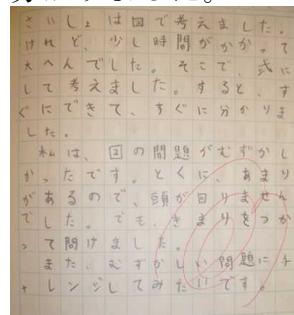 さいしょは図で考えました。
けれど、少し時間がかかって
大へんでした。そこで、式に
して考えました。すると、す
ぐにできて、すぐに分かりま
した。
私は、図の問題がむずかし
かったです。とくに、あまり
があるので、頭が回りません
でした。でも、きまりをつか
って問けました。
また、むずかしい問題にチ
ャレンジしてみたいです。